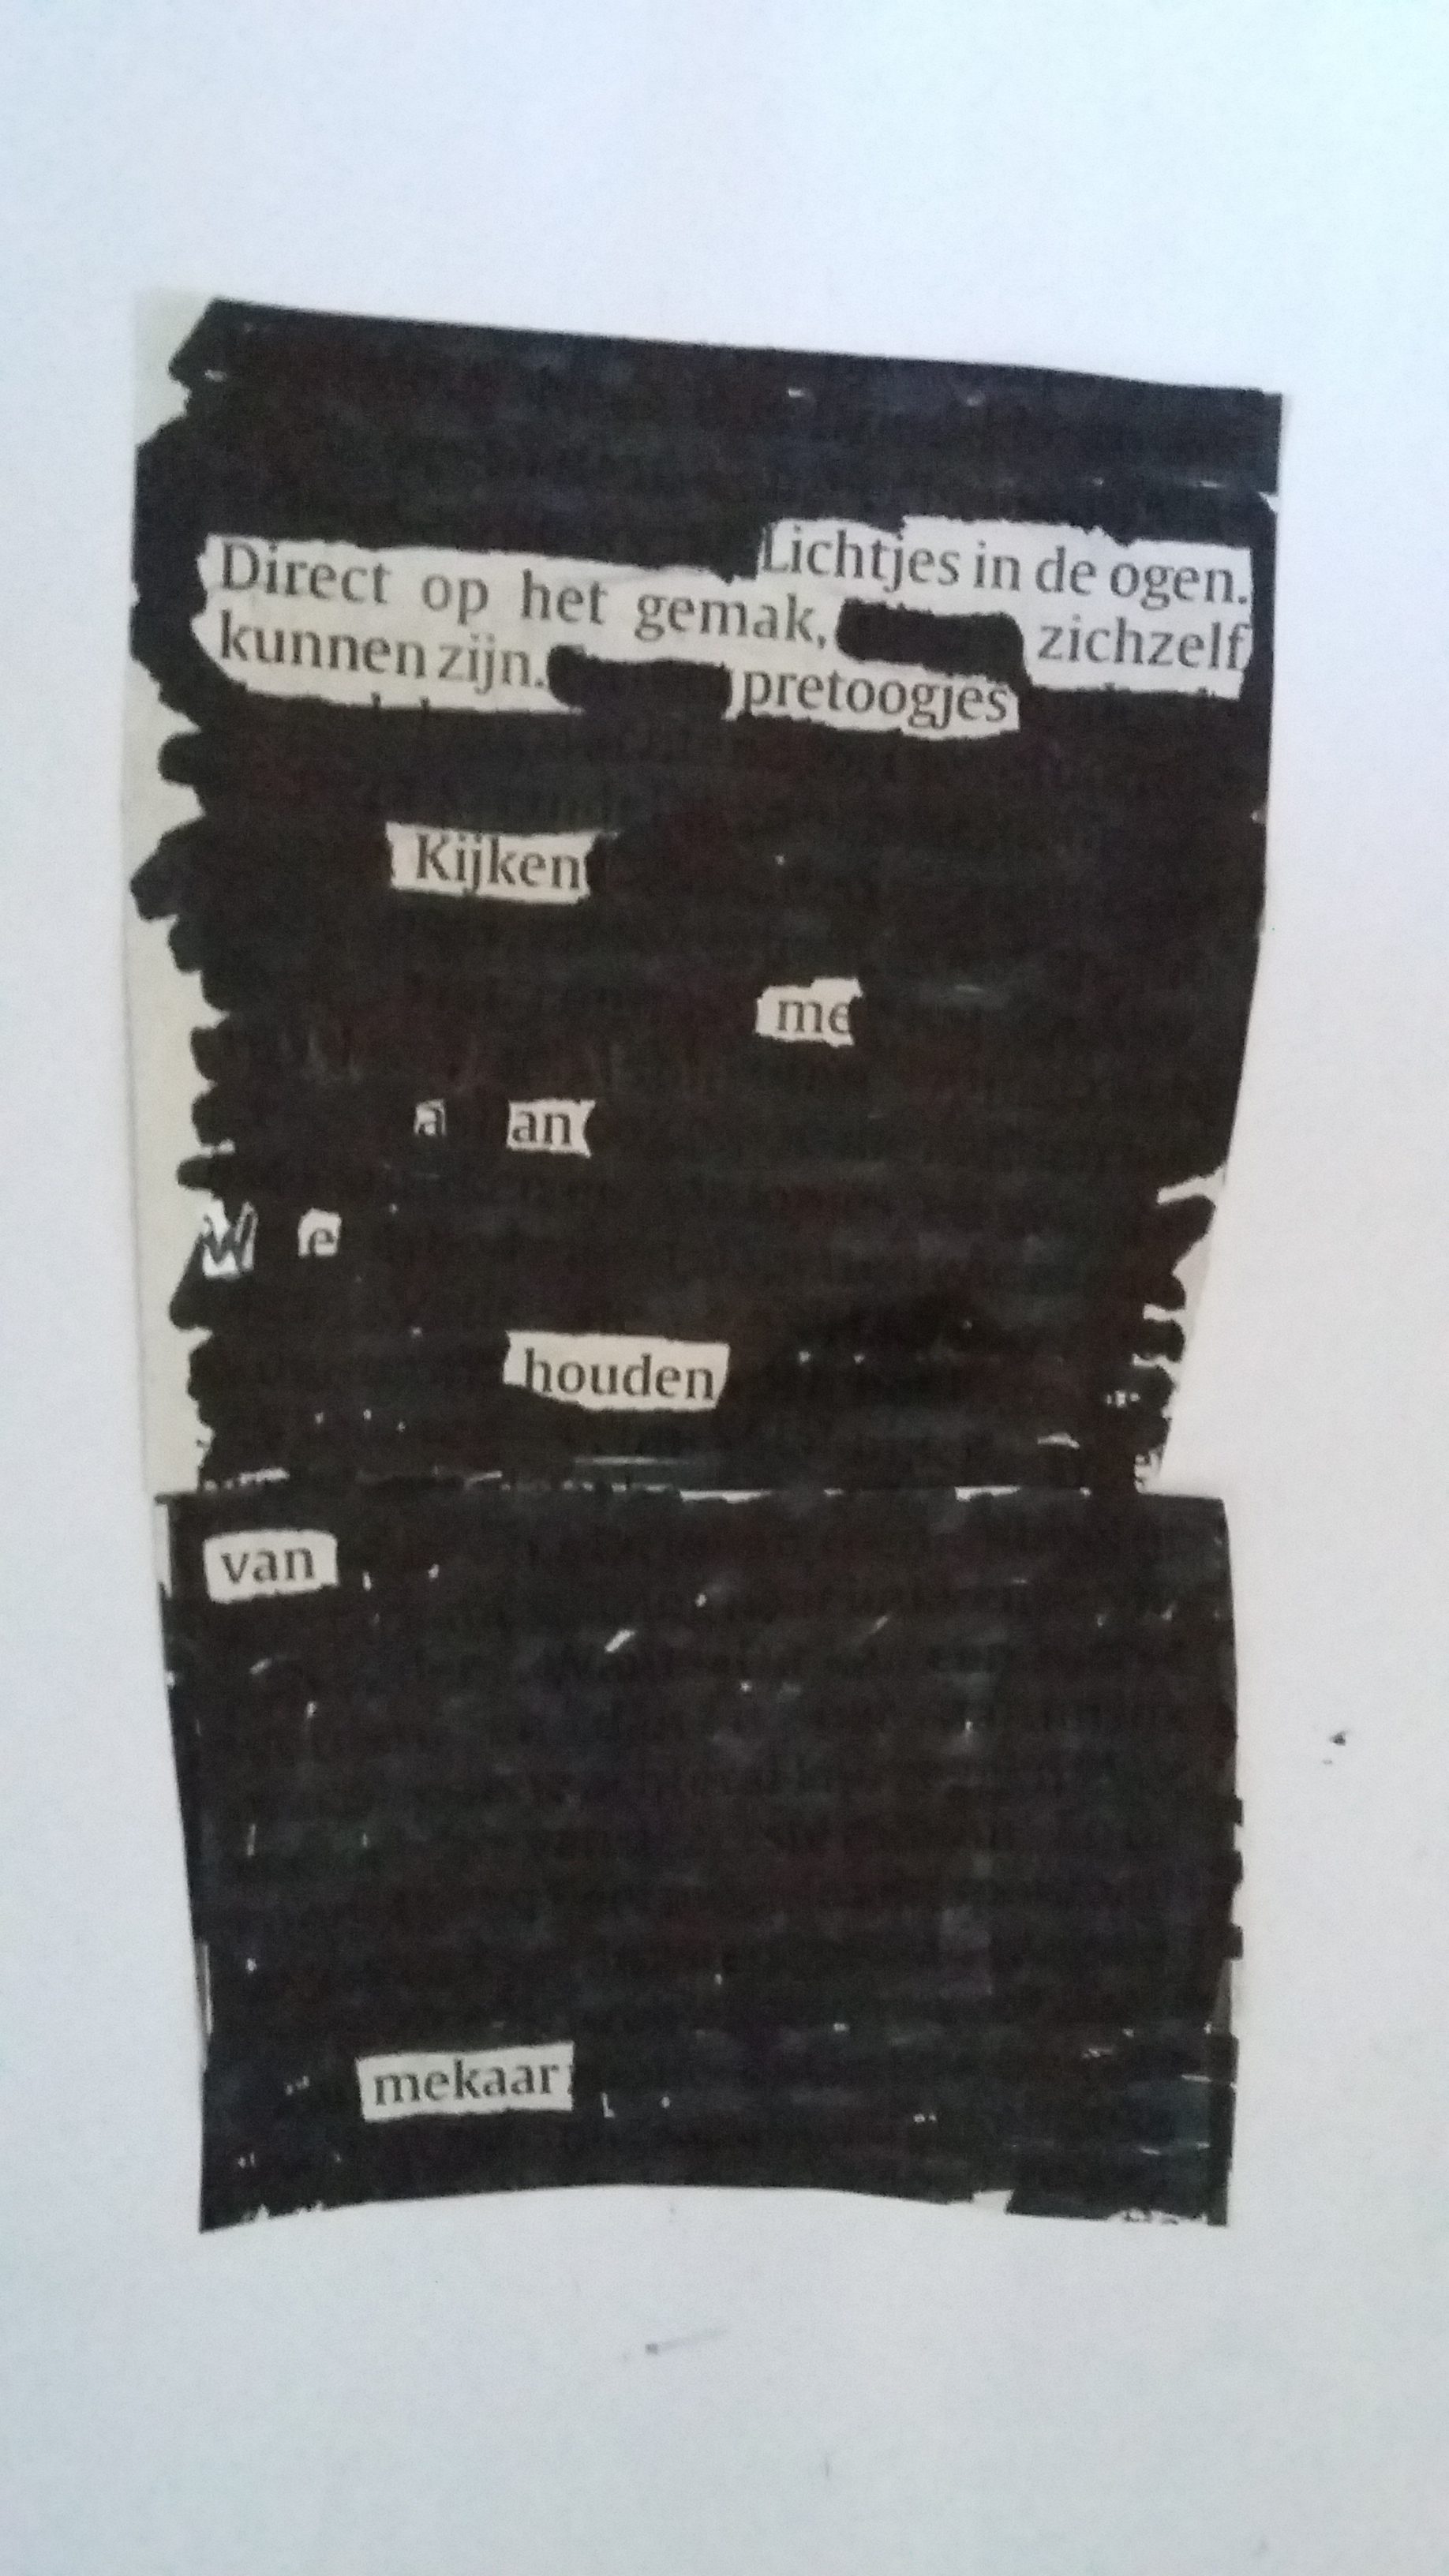 Lichtjes in de ogen.
Direct op het gemak, zichzelf
kunnen zijn. pretoogjes
Kijken
me
a an
W e
houden
van
mekaar